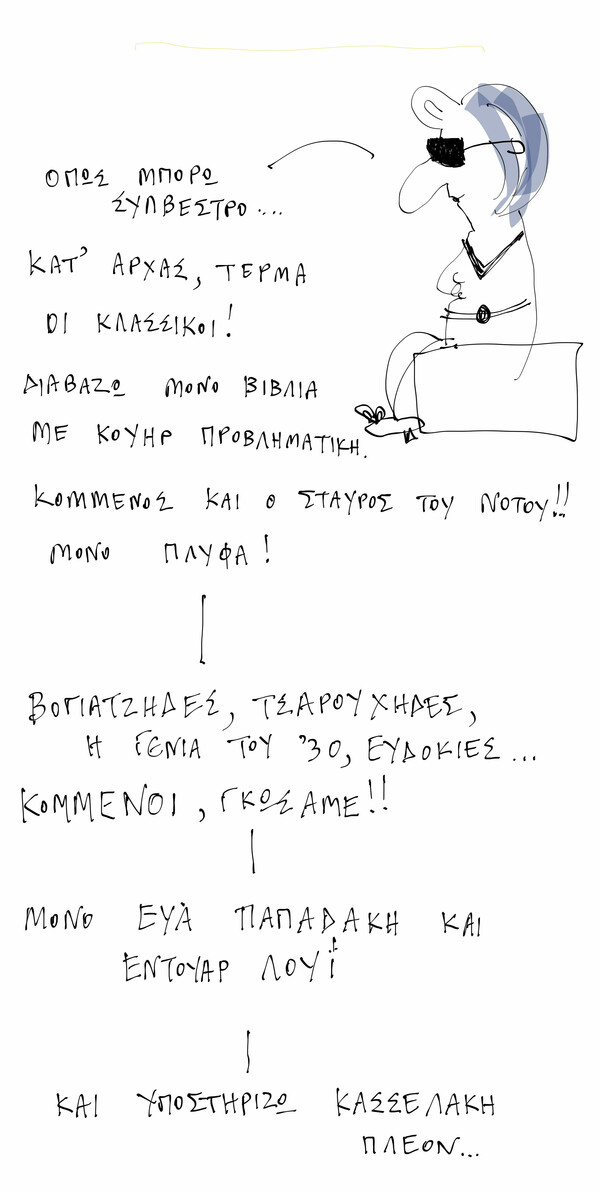 ΟΠΩΣ ΜΠΟΡΩ
ΣΥΛΒΕΣΤΡΟ...
ΚΑΤ' ΑΡΧΑΣ, ΤΕΡΜΑ
ΟΙ ΚΛΑΣΣΙΚΟΙ!
ΔΙΑΒΑΖΩ ΜΟΝΟ ΒΙΒΛΙΑ
ΜΕ ΚΟΥΗΡ ΠΡΟΒΛΗΜΑΤΙΚΗ.
ΚΟΜΜΕΝΟΣ ΚΑΙ Ο ΣΤΑΥΡΟΣ ΤΟΥ ΝΟΤΟΥ!!
ΜΟΝΟ ΠΛΥΦΑ!
ΒΟΓΙΑΤΖΗΔΕΣ, ΤΣΑΡΟΥΧΗΔΕΣ,
Η ΓΕΝΙΑ ΤΟΥ '30, ΕΥΔΟΚΙΕΣ...
ΚΟΜΜΕΝΟΙ, ΓΚΩΣΑΜΕ!!
ΜΟΝΟ ΕΥΑ ΠΑΠΑΔΑΚΗ ΚΑΙ
ΕΝΤΟΥΑΡ ΛΟΥΪ
ΚΑΙ ΥΠΟΣΤΗΡΙΖΩ ΚΑΣΣΕΛΑΚΗ
ΠΛΕΟΝ...